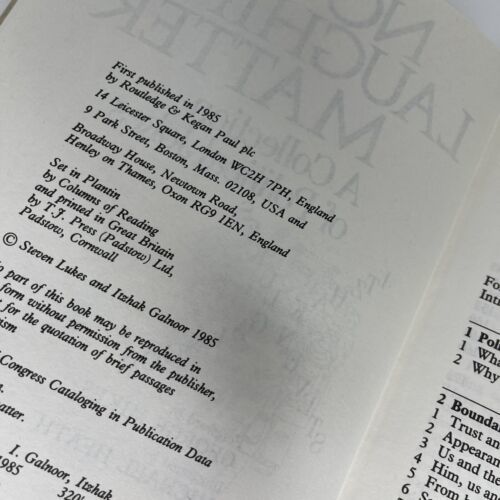 First published in 1985
by Routledge & Kegan Paul plc
14 Leicester Square, London WC2H 7PH, England
9 Park Street, Boston, Mass. 02108, USA and
Broadway House, Newtown Road,
Henley on Thames, Oxon RG9 1EN, England
Set in Plantin
by Columns of Reading
and printed in Great Britain
by T.J. Press (Padstow) Ltd,
Padstow, Cornwall
© Steven Lukes and Itzhak Galnoor 1985
part of this book may be reproduced in
form without permission from the publisher,
for the quotation of brief passages
Congress Cataloging in Publication Data
I. Galnoor, Itzhak
1985
NO
LAUGHING
MATTER
A Collection
of
1 Poli
1 Wha
2 Why
2 Bounda
1 Trust an
2 Appearan
3 Us and th
4 Him, us an
5 From b
6